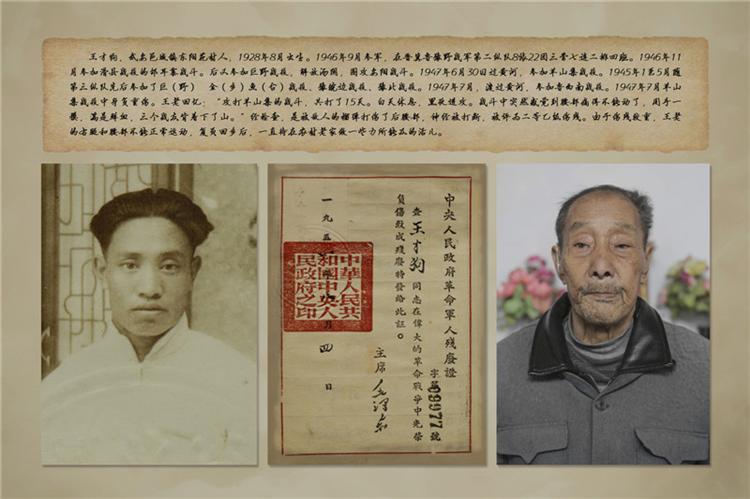 王才狗，武安邑城镇东阳苑村人，1928年8月出生。1946年9月参军，在晋冀鲁豫野战军第二纵队8旅22团三营七连二排四班。1946年11
月参加滑县战役的邵耳寨战斗。后又参加巨野战役、解放汤阴、围攻安阳战斗。1947年6月30日过黄河，参加羊山集战役。1945年1至5月随
第三纵队先后参加了巨（野） 金（乡）鱼（台）战役、豫皖边战役、豫北战役。1947年7月，渡过黄河，参加鲁西南战役。1947年7月羊山
集战役中身负重伤。王老回忆：“攻打羊山集的战斗，共打了15天。白天休息，黑夜进攻。战斗中突然感觉到腰部痛得不能动了，用手一
摸，篙是鲜血，三个战友背着下了山。”经检查，是被敌人的榴弹打伤了后腰部，神经被打断，被评为二等乙级伤残。由于伤残较重，王老
的右腿和腰部不能正常运动，复员回乡后，一直待在村老家做一些力所能及的活儿。
中央人民政府革命軍人殘廢證
字第09977號
查王才狗同志在偉大的革命戰爭中光榮
負傷致成殘廢特發給此証。
主席毛澤東
一九五年月四日
中華人民共
和國中央人
民政府之印